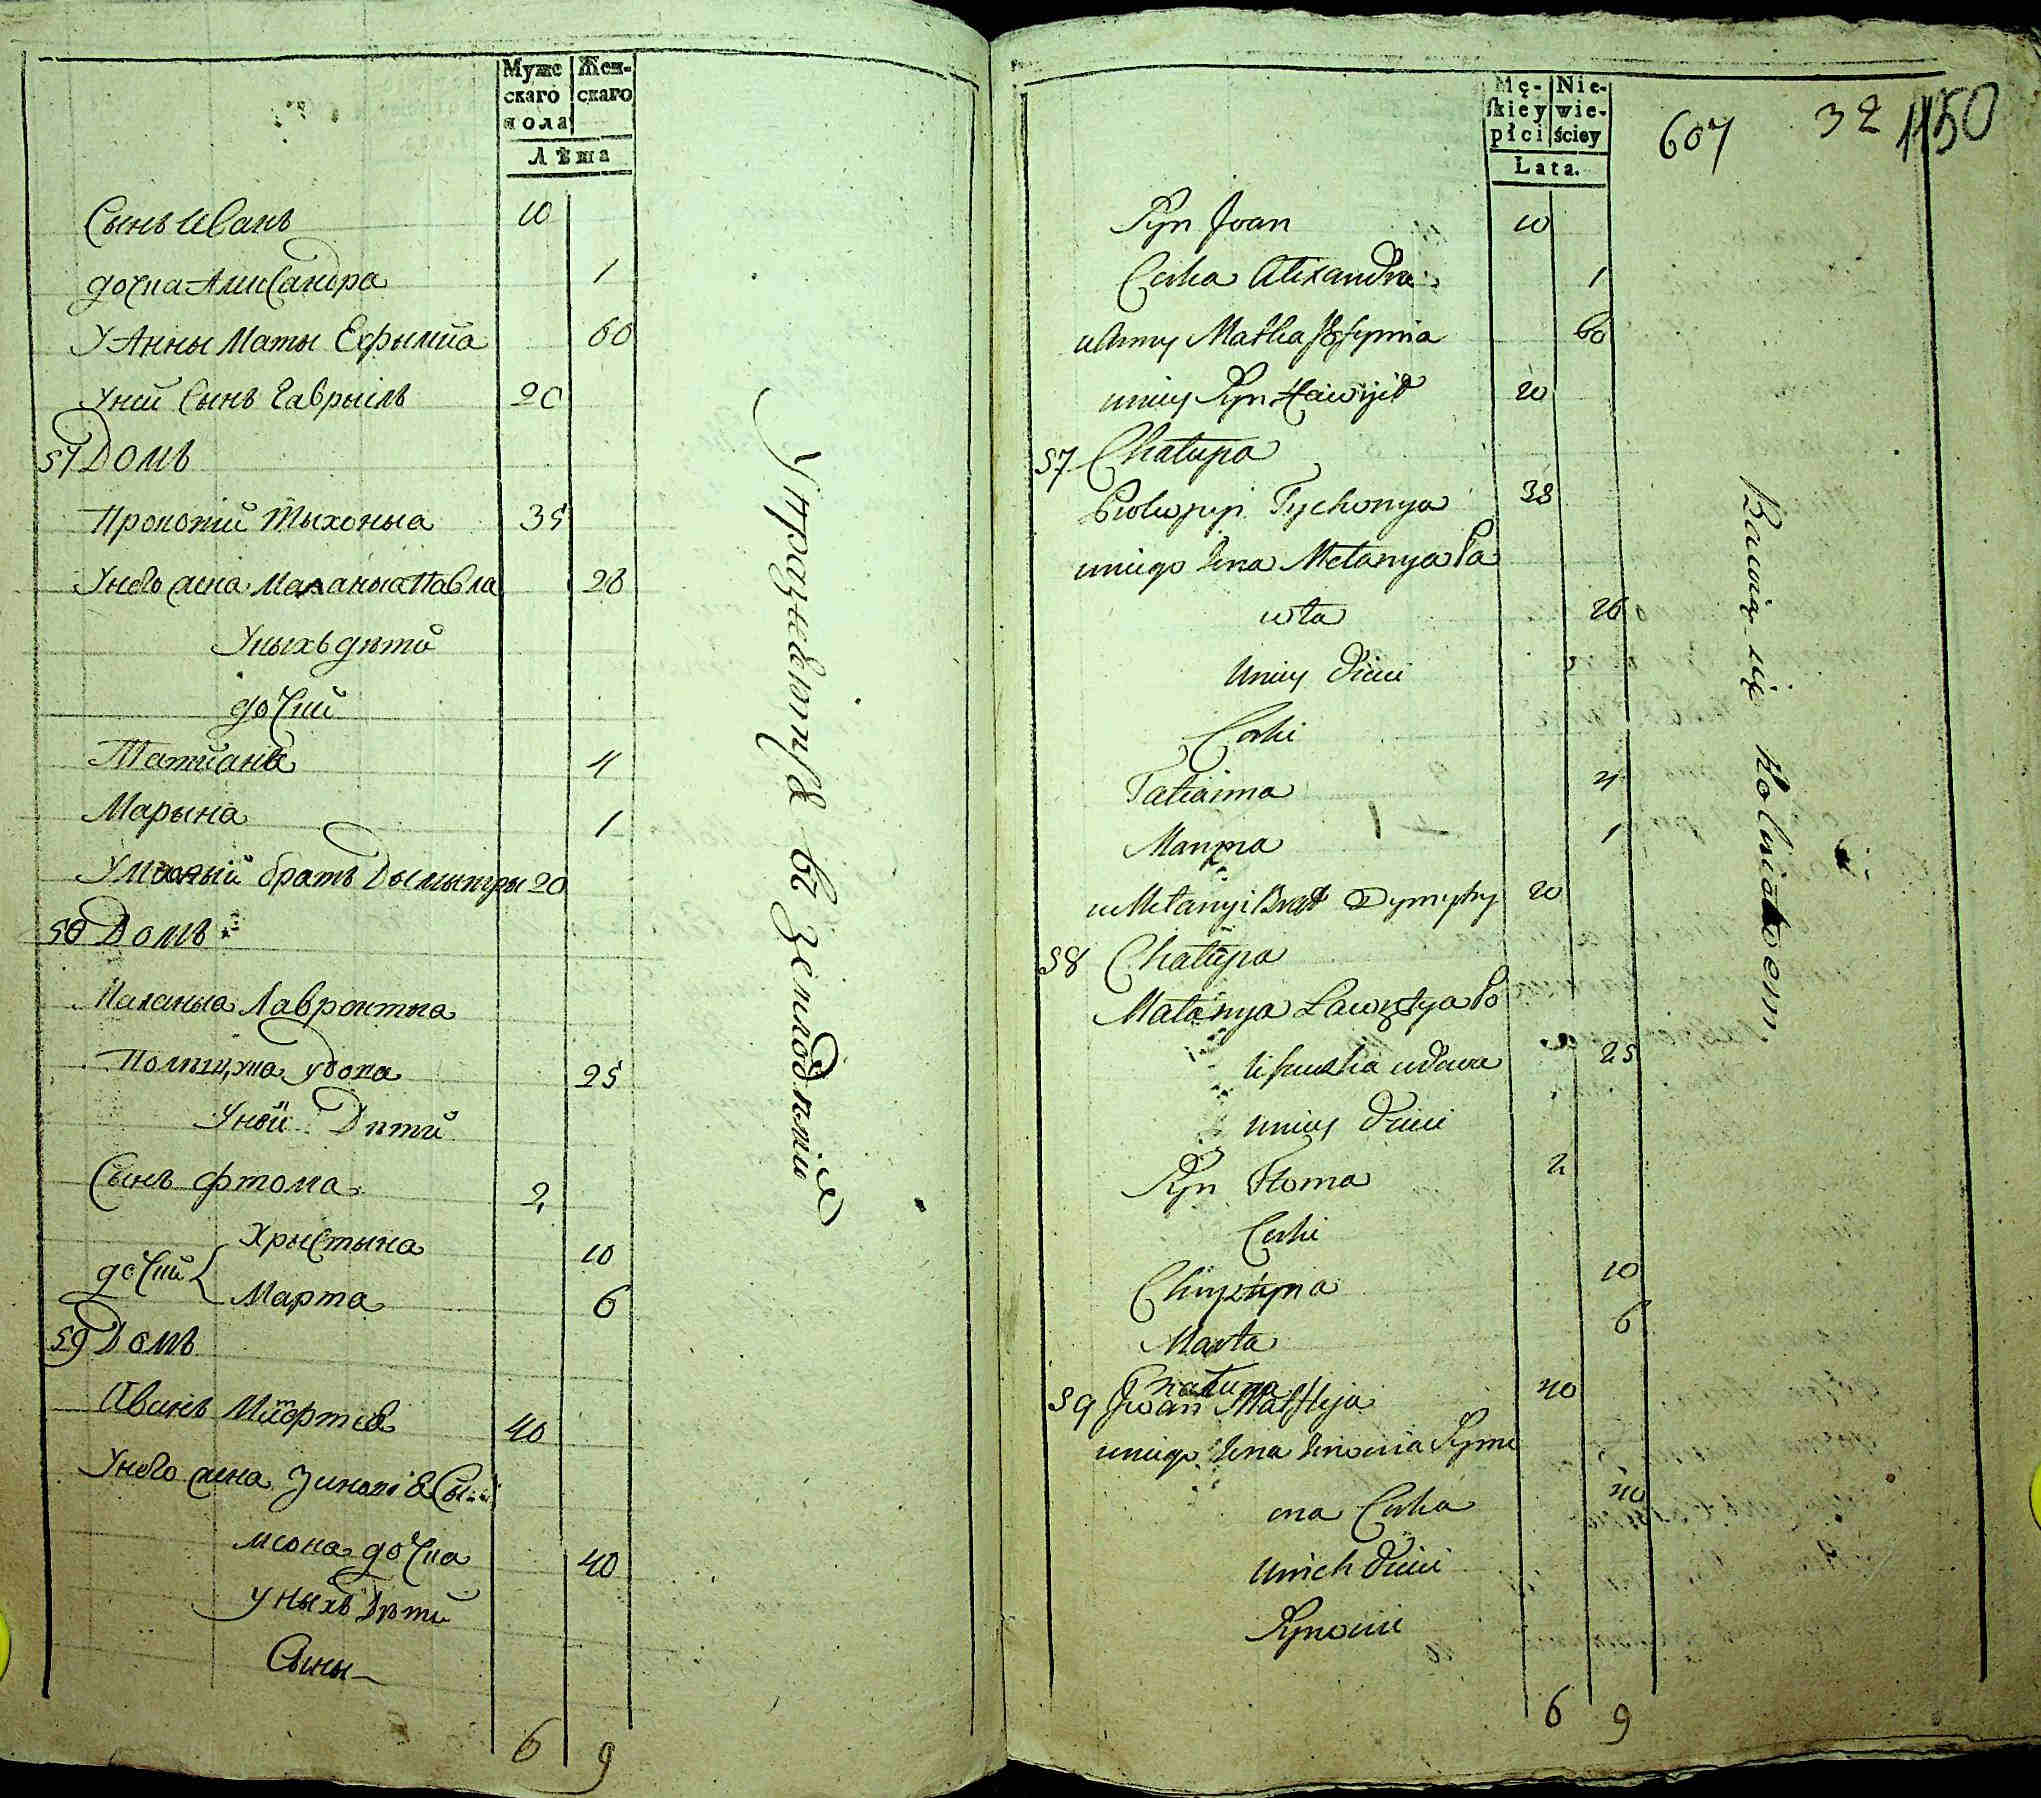 Муже Жен-
скаго скаго
пола
Лѣта
Сынъ Иванъ 10
дочка Алисандра 1
У Анны Маты Ефымиа 60
Уней Сынъ Гаврыилъ 20
57 Домъ
Прокопий Тыхоныа 35
Унего жена Маланыа Павла 28
Уныхъ дѣти
дочки
Татиана 4
Марына 1
У Маланыи братъ Дымытры 20
58 Домъ
Маланыа Лавронтыа
Полищука удова 25
Уной Дѣти
Сынъ Фтома 2
Хрыстына 10
дочки
Марта 6
59 Домъ
Иванъ Матфтея 40
Унего жена Зиновиа Сы
мона дочка 40
Уныхъ Дѣти
Сыны
6 9
Упражняется въ Земледѣлии
Mę- Nie-
skiey wie-
płci ściey
Lata.
607 32 1150
Syn Joan 10
Corka Alexandra 1
u Anny Matka Jefymia 60
uniey Syn Hawryił 20
57 Chałupa
Prokopyi Tychonya 38
uniego żona Mełanya Pa
wła 26
Uniey dzieci
Corki
Tatianna 4
Maryna 1
u Mełanyi Brat Dymytry 20
58 Chałupa
Małanya Ławrętya Po
liszczuka udowa 25
uniey dzieci
Syn Ftoma 2
Corki
Chrystyna 10
Marta 6
Chałupa
59 Jwan Matfteja 40
uniego żona Zinowia Symo
ona Corka 40
Unich dzieci
Synowie
6 9
Bawią się Rolnictwem